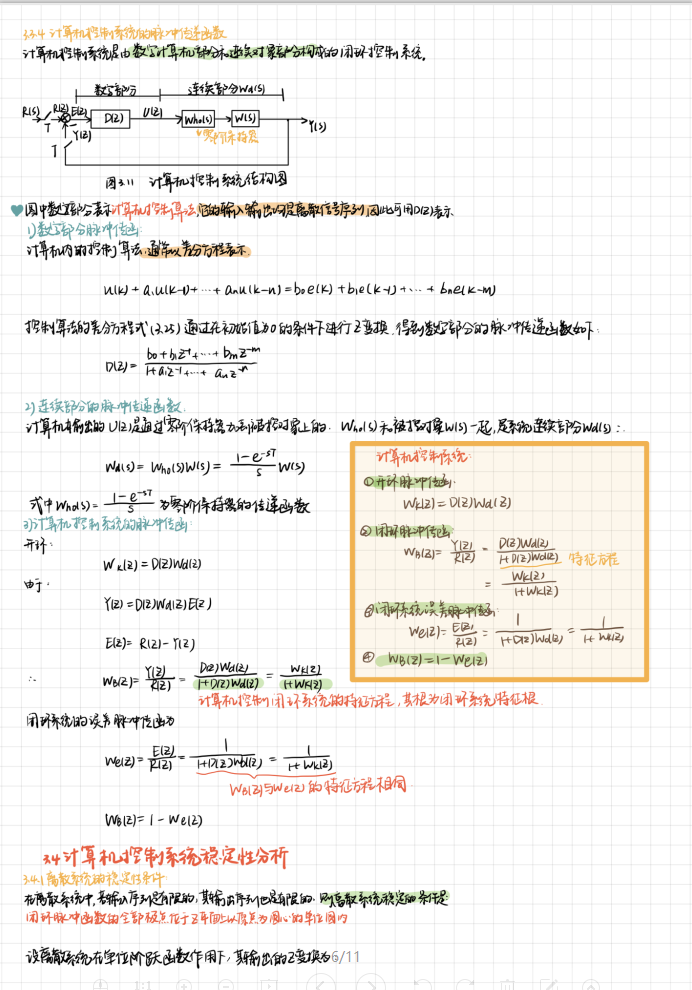 3.3.4 计算机控制系统的脉冲传递函数
计算机控制系统是由数字计算机部分和连续对象部分构成的闭环控制系统。
数字部分 连续部分Wd(s)
R(s) R(z) E(z) D(z) U(z) Who(s) W(s) Y(s)
T Y(z) 零阶保持器
T
图3.11 计算机控制系统结构图
图中数字部分表示计算机控制算法,它的输入输出均是离散信号序列,因此可用D(z)表示.
1)数字部分脉冲传函:
计算机内的控制算法,通常以差分方程表示.
u(k)+a₁u(k-1)+…+anu(k-n)=b₀e(k)+b₁e(k-1)+…+bme(k-m)
控制算法的差分方程式(3.25)通过在初始值为0的条件下进行Z变换,得到数字部分的脉冲传递函数如下:
D(z)= b₀+b₁z⁻¹+…+bmz⁻ᵐ / 1+a₁z⁻¹+…+anz⁻ⁿ
2)连续部分的脉冲传递函数.
计算机输出的U(z)是通过零阶保持器加到被控对象上的. Who(s)和被控对象W(s)一起,是系统连续部分Wd(s):
Wd(s)=Who(s)W(s)= 1-e⁻ˢᵀ / s W(s)
式中Who(s)= 1-e⁻ˢᵀ / s 为零阶保持器的传递函数
3)计算机控制系统的脉冲传函:
开环:
Wk(z)=D(z)Wd(z)
由于:
Y(z)=D(z)Wd(z)E(z)
E(z)=R(z)-Y(z)
∴ WB(z)= Y(z) / R(z) = D(z)Wd(z) / 1+D(z)Wd(z) = Wk(z) / 1+Wk(z)
计算机控制闭环系统的特征方程,其根为闭环系统特征根.
闭环系统的误差脉冲传函为
We(z)= E(z) / R(z) = 1 / 1+D(z)Wd(z) = 1 / 1+Wk(z)
WB(z)与We(z)的特征方程相同.
WB(z)=1-We(z)
计算机控制系统:
①开环脉冲传函:
Wk(z)=D(z)Wd(z)
②闭环脉冲传函
WB(z)= Y(z) / R(z) = D(z)Wd(z) / 1+D(z)Wd(z) 特征方程
= Wk(z) / 1+Wk(z)
③闭环系统误差脉冲传函:
We(z)= E(z) / R(z) = 1 / 1+D(z)Wd(z) = 1 / 1+Wk(z)
④ WB(z)=1-We(z)
3.4 计算机控制系统稳定性分析
3.4.1 离散系统的稳定性条件
在离散系统中,若输入序列是有限的,其输出序列也是有限的,则离散系统稳定的条件是
闭环脉冲函数的全部极点位于Z平面上以原点为圆心的单位圆内
设离散系统在单位阶跃函数作用下,其输出的Z变换为
6/11
1:1